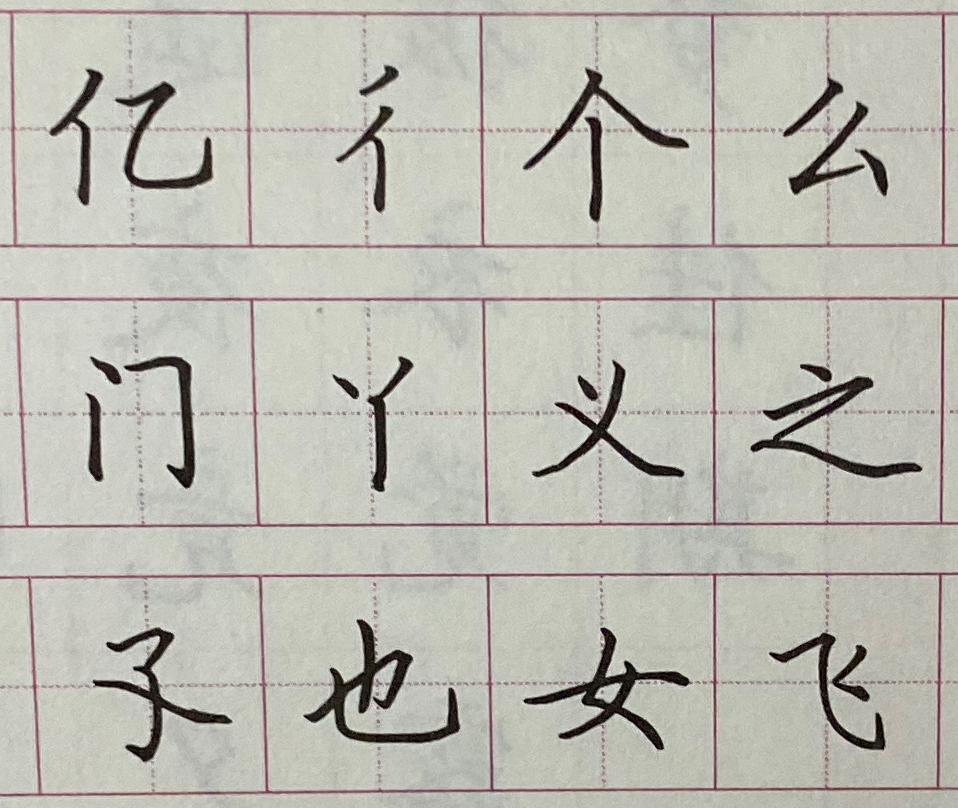 亿彳个么
门丫义之
孓也女飞